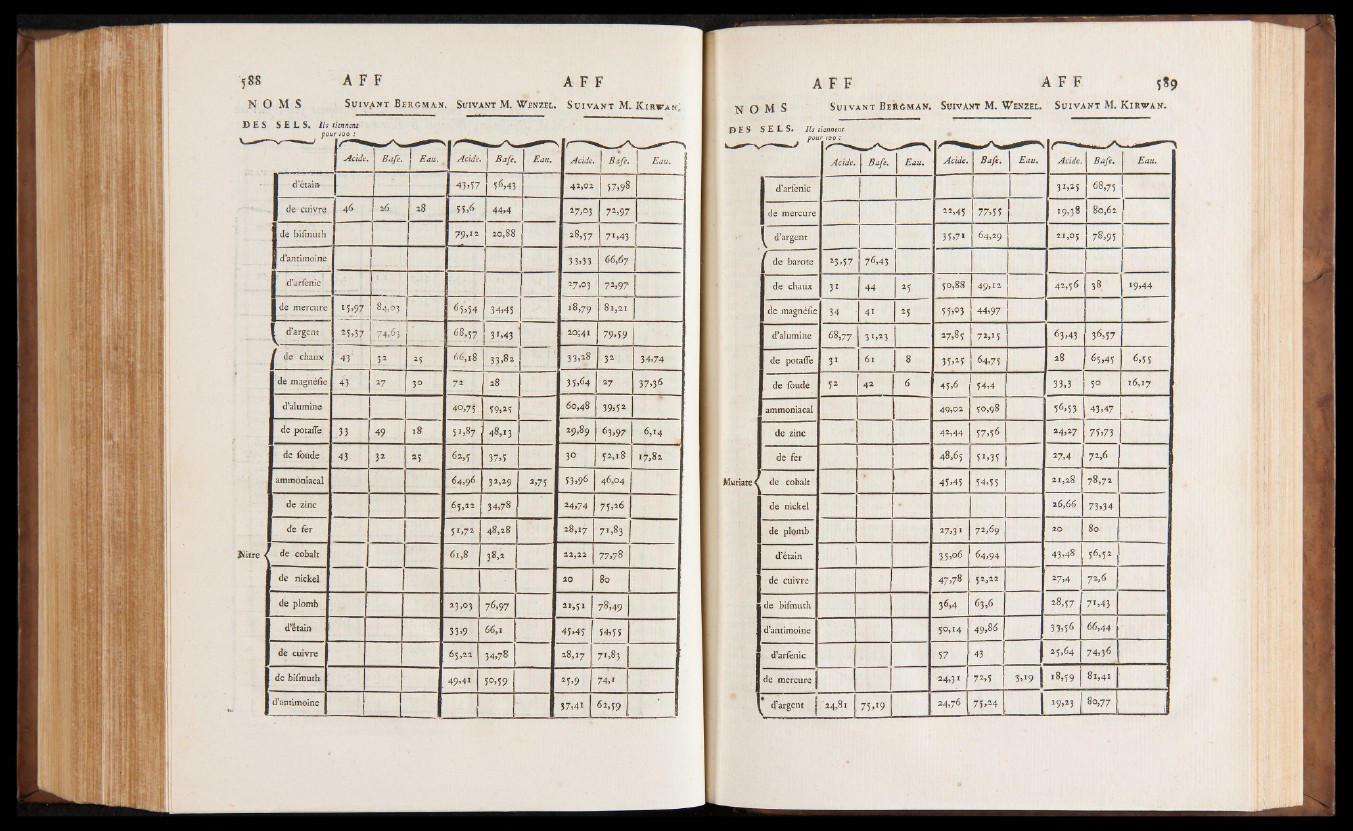 588 AFF AFF
NOMS SUIVANT BERGMAN. SUIVANT M. WENZEL. SUIVANT M. KIRWAN.
DES SELS. Ils tiennent
pour 100 :
Acide. Base. Eau. Acide. Base. Eau. Acide. Base. Eau.
d'étain 43,57 56,43 42,02 57,98
de cuivre 46 26 28 55,6 44,4 27,03 72,97
de bismuth 79,12 20,88 28,57 71,43
d'antimoine 33,33 66,67
d'arsenic 27,03 72,97
de mercure 15,97 84,03 65,54 34,45 18,79 81,21
d'argent 25,37 74,63 68,57 31,43 20,41 79,59
de chaux 43 32 25 66,18 33,82 33,28 32 34,74
de magnésie 43 27 30 72 28 35,64 27 37,36
d'alumine 40,75 59,25 60,48 39,52
de potasse 33 49 18 51,87 48,13 29,89 63,97 6,14
de soude 43 32 25 62,5 37,5 30 52,18 17,82
ammoniacal 64,96 32,29 2,75 53,96 46,04
de zinc 65,22 34,78 24,74 75,26
de fer 51,72 48,28 28,17 71,83
Nitre de cobalt 61,8 38,2 22,22 77,78
de nickel 20 80
de plomb 23,03 76,97 21,51 78,49
d'étain 33,9 66,1 45,45 54,55
de cuivre 65,22 34,78 28,17 71,83
de bismuth 49,41 50,59 25,9 74,1
d'antimoine 37,41 62,59
AFF AFF 589
NOMS SUIVANT BERGMAN. SUIVANT M. WENZEL. SUIVANT M. KIRWAN.
DES SELS. Ils tiennent
pour 100 :
Acide. Base. Eau. Acide. Base. Eau. Acide. Base. Eau.
d'arsenic 31,25 68,75
de mercure 22,45 77,55 19,38 80,62
d'argent 35,71 64,29 21,05 78,95
de barote 23,57 76,43
de chaux 31 44 25 50,88 49,12 42,56 38 19,44
de magnésie 34 41 25 55,03 44,97
d'alumine 68,77 31,23 27,85 72,15 63,43 36,57
de potasse 31 61 8 35,25 64,75 28 65,45 6,55
de soude 52 42 6 45,6 54,4 33,3 50 16,17
ammoniacal 49,02 50,98 56,53 43,47
de zinc 42,44 57,56 24,27 75,73
de fer 48,65 51,35 27,4 72,6
Muriate de cobalt 45,45 54,55 21,28 78,72
de nickel 26,66 73,34
de plomb 27,31 72,69 20 80
d'étain 35,06 64,94 43,48 56,52
de cuivre 47,78 52,22 27,4 72,6
de bismuth 36,4 63,6 28,57 71,43
d'antimoine 50,14 49,86 33,56 66,44
d'arsenic 57 43 25,64 74,36
de mercure 24,31 72,5 3,19 18,59 81,41
d'argent 24,81 75,19 24,76 75,24 19,23 80,77